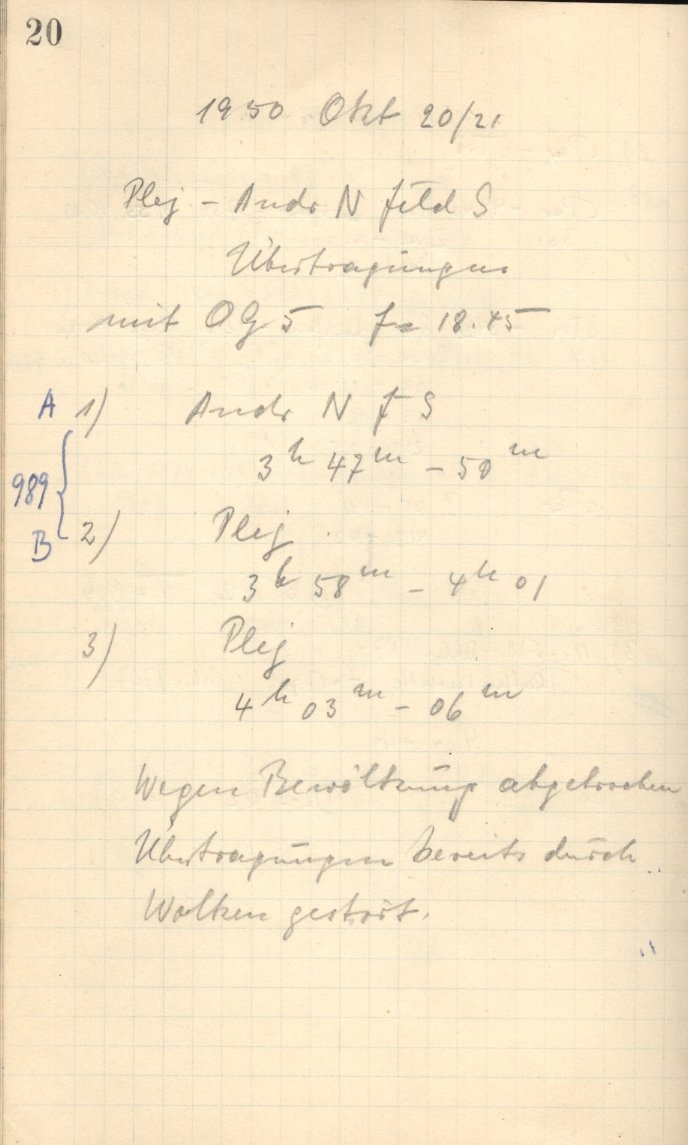 20
1950 Okt 20/21
Plej - Andr N feld S
Übertragungen
mit OG 5 f = 18.45
A 1) Andr N f S
3h 47m - 50m
989
B 2) Plej
3h 58m - 4h 01
3) Plej
4h 03m - 06m
Wegen Bewölkung abgebrochen
Übertragungen bereits durch
Wolken gestört.